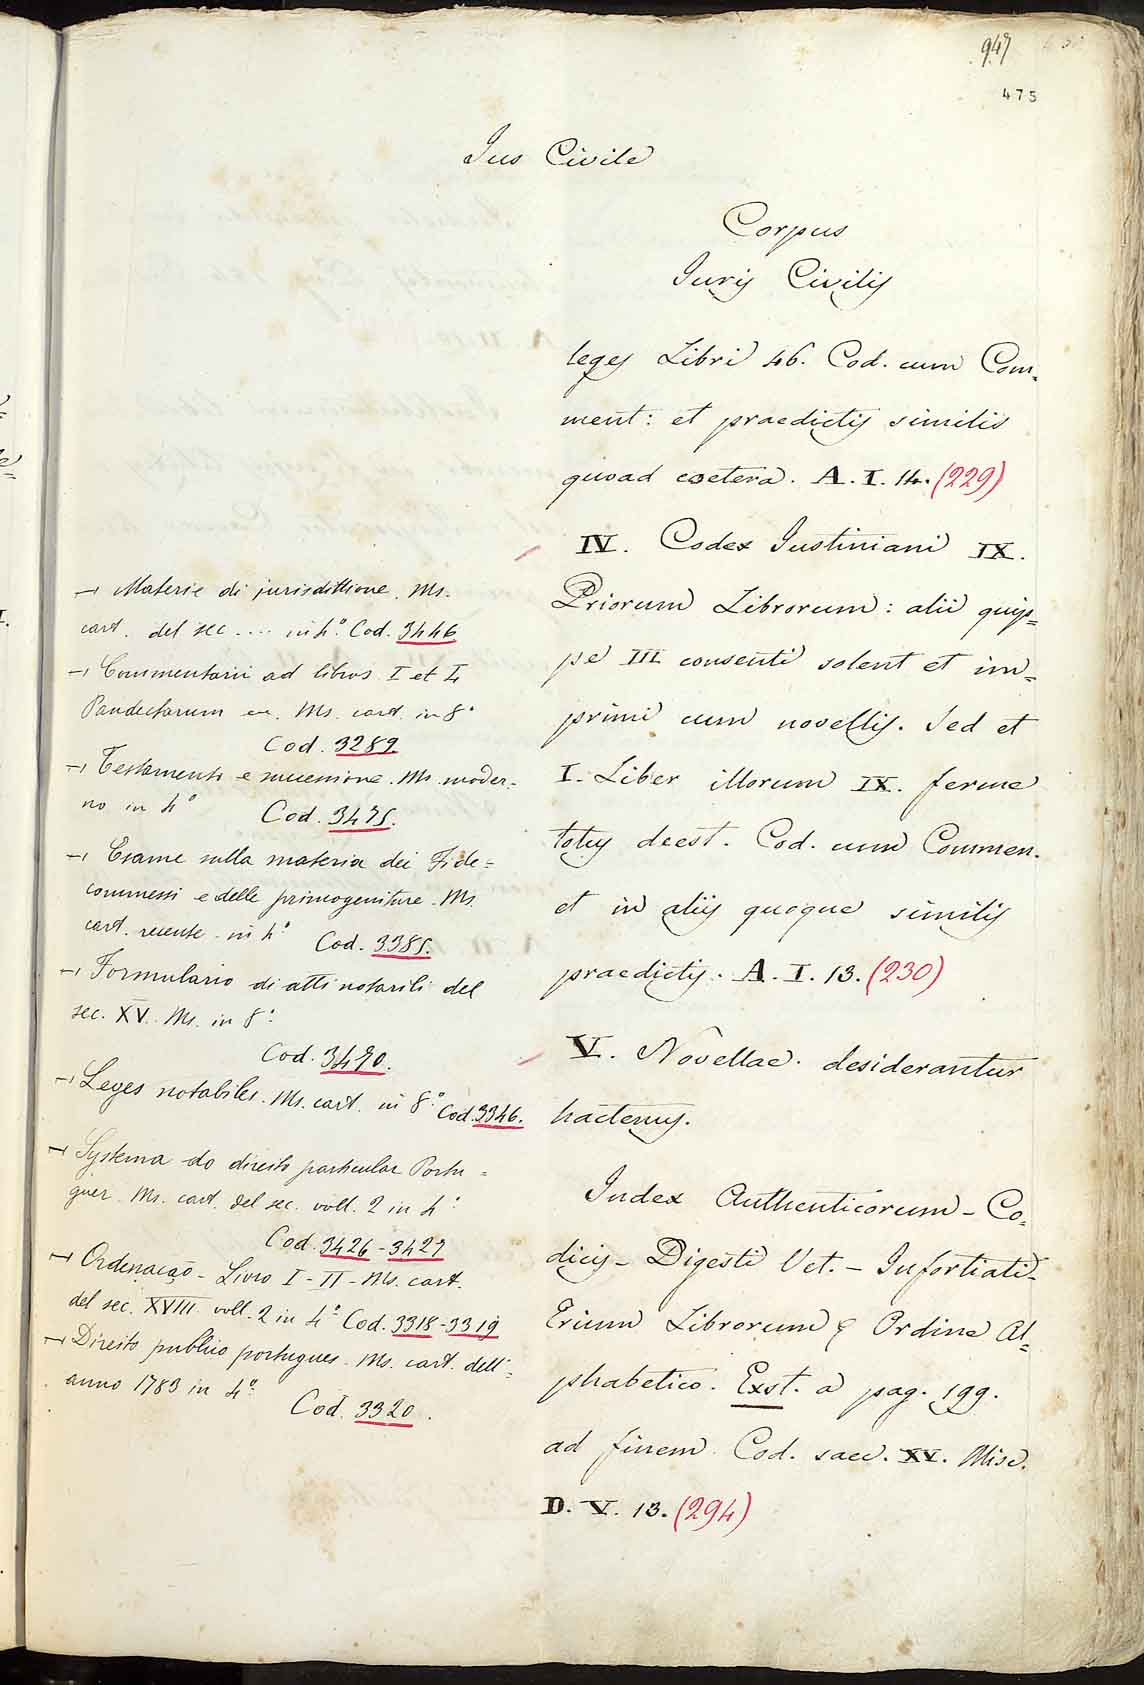 947
475
Jus Civile
Corpus
Juris Civilis
leges Libri 46. Cod. cum Com-
ment: et praedictis similis
quoad coetera. A. I. 14. (229)
IV. Codex Justiniani IX.
Priorum Librorum: alii quip=
pe III conscuti solent et im=
primi cum novellis. Sed et
I. Liber illorum IX. ferme
totus deest. Cod. cum Commen.
et in aliis quoque similis
praedictis. A. I. 13. (230)
V. Novellae desiderantur
hactenus.
Index Authenticorum - Co=
dicis - Digesti Vet. - Infortiati-
Trium Librorum & Ordine Al=
phabetico. Exst. a pag. 199.
ad finem. Cod. saec. XV. Misc.
D. V. 13. (294)
→ Materie di jurisdittione. Ms.
cart. del sec .... in 4° Cod. 3446
→ Commentarii ad libros I et L
Pandectarum ec. Ms. cart. in 8°
Cod. 3289
→ Testamenti e successione. Ms. moder=
no in 4° Cod. 3475.
→ Esame sulla materia dei Fide=
commessi e delle primogeniture. Ms.
cart. recente in 4° Cod. 3385.
→ Formulario di atti notarili del
sec. XV. Ms. in 8°
Cod. 3470.
→ Leges notabiles. Ms. cart. in 8° Cod. 3346.
→ Systema do direito particular Portu=
guez. Ms. cart. del sec. voll. 2 in 4°
Cod. 3426-3427
→ Ordenação - Livro I - II - Ms. cart.
del sec. XVIII voll. 2 in 4° Cod. 3318-3319
→ Direito publico portugues. Ms. cart. dell'
anno 1783 in 4°
Cod. 3320.